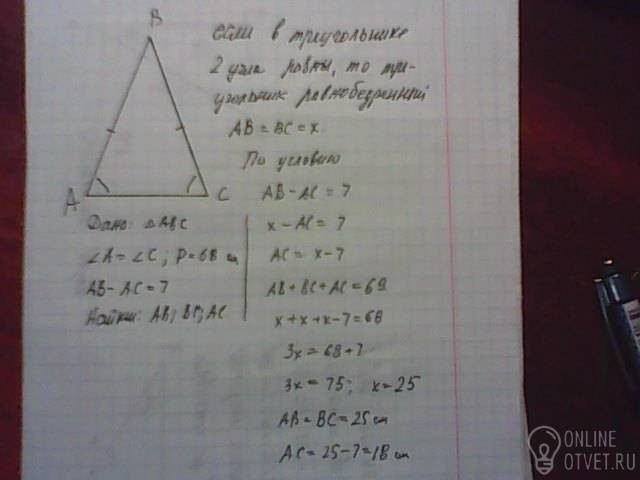 B
A
C
если в треугольнике
2 угла равны, то тре-
угольник равнобедренный
AB = BC = x
По условию
AB - AC = 7
x - AC = 7
AC = x - 7
AB + BC + AC = 68
x + x + x - 7 = 68
3x = 68 + 7
3x = 75; x = 25
AB = BC = 25 см
AC = 25 - 7 = 18 см
Дано: △ABC
∠A = ∠C; P = 68 см
AB - AC = 7
Найти: AB; BC; AC
ONLINE
OTVET.RU